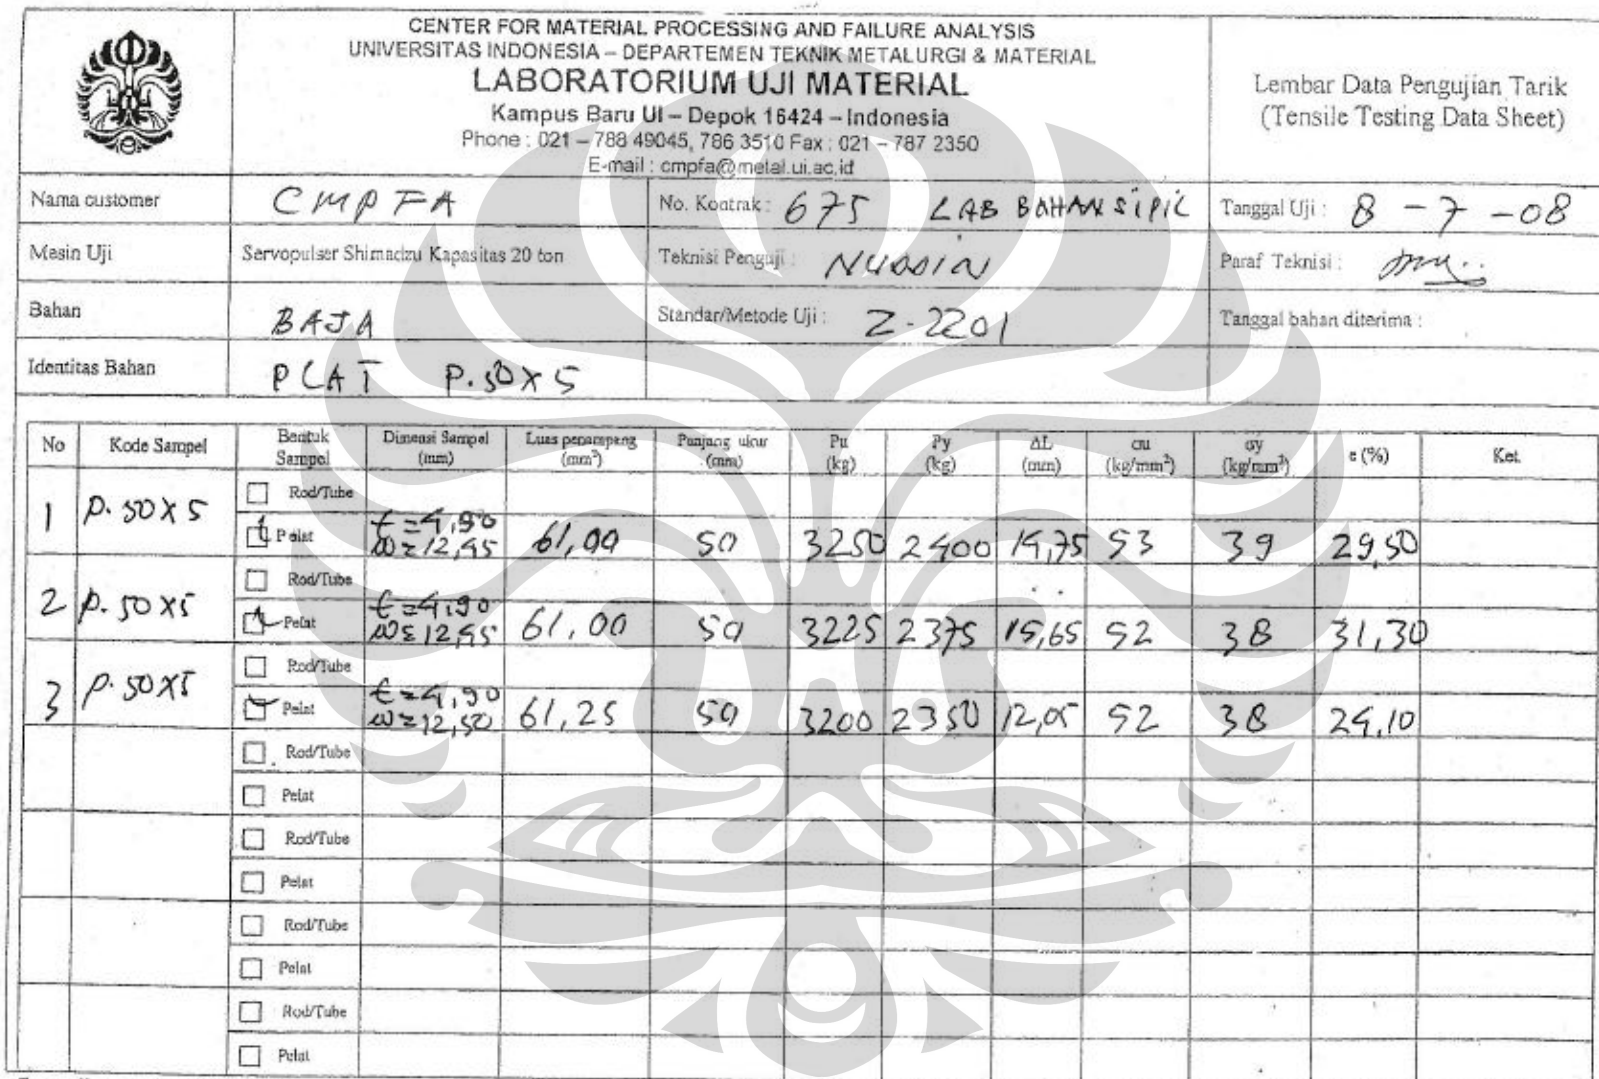 CENTER FOR MATERIAL PROCESSING AND FAILURE ANALYSIS
UNIVERSITAS INDONESIA – DEPARTEMEN TEKNIK METALURGI & MATERIAL
LABORATORIUM UJI MATERIAL
Kampus Baru UI – Depok 16424 – Indonesia
Phone : 021 – 788 49045, 786 3510 Fax : 021 – 787 2350
E-mail : cmpfa@metal.ui.ac.id
Lembar Data Pengujian Tarik
(Tensile Testing Data Sheet)
Nama customer CMPFA No. Kontrak : 675 LAB BAHAN SIPIL Tanggal Uji : 8 - 7 - 08
Mesin Uji Servopulser Shimadzu Kapasitas 20 ton Teknisi Penguji : Paraf Teknisi :
Bahan BAJA Standar/Metode Uji : Z-2201 Tanggal bahan diterima :
Identitas Bahan PLAT P.50X5
No Kode Sampel Bentuk Sampel Dimensi Sampel (mm) Luas penampang (mm²) Panjang ukur (mm) Pu (kg) Py (kg) ΔL (mm) σu (kg/mm²) σy (kg/mm²) e (%) Ket.
Rod/Tube
1 P.50X5 Pelat t=4,90 w=12,45 61,00 50 3250 2400 14,75 53 39 29,50
Rod/Tube
2 P.50X5 Pelat t=4,90 w=12,45 61,00 50 3225 2375 15,65 52 38 31,30
Rod/Tube
3 P.50X5 Pelat t=4,90 w=12,50 61,25 50 3200 2350 12,05 52 38 24,10
Rod/Tube
Pelat
Rod/Tube
Pelat
Rod/Tube
Pelat
Rod/Tube
Pelat